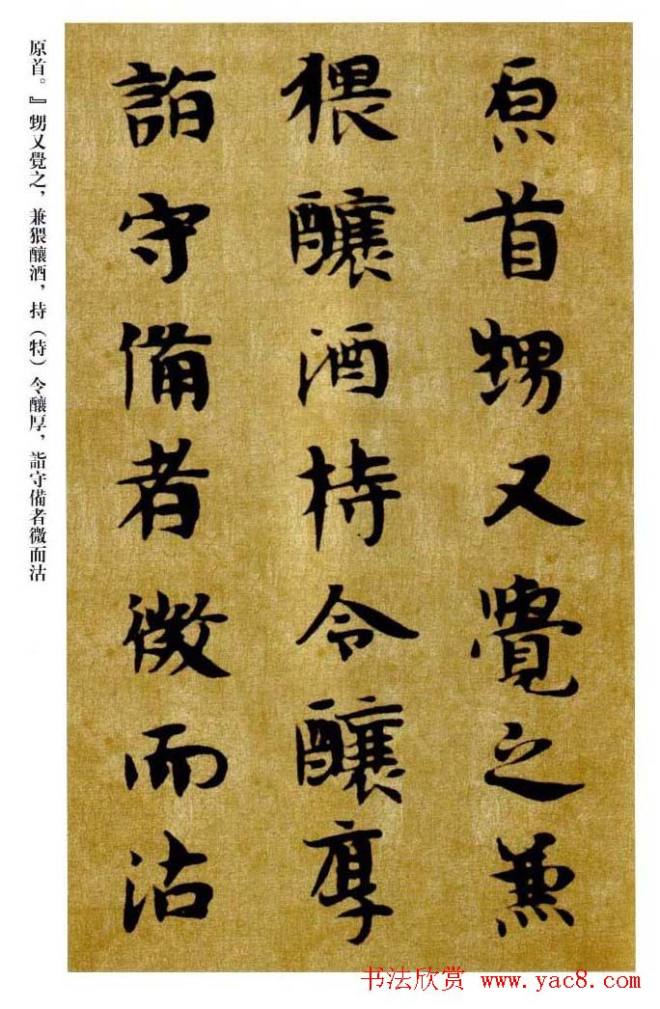 原首甥又覺之兼
猥釀酒持令釀厚
詣守備者微而沽
原首。』甥又覺之，兼猥釀酒，持（特）令釀厚，詣守備者微而沽
书法欣赏 www.yac8.com